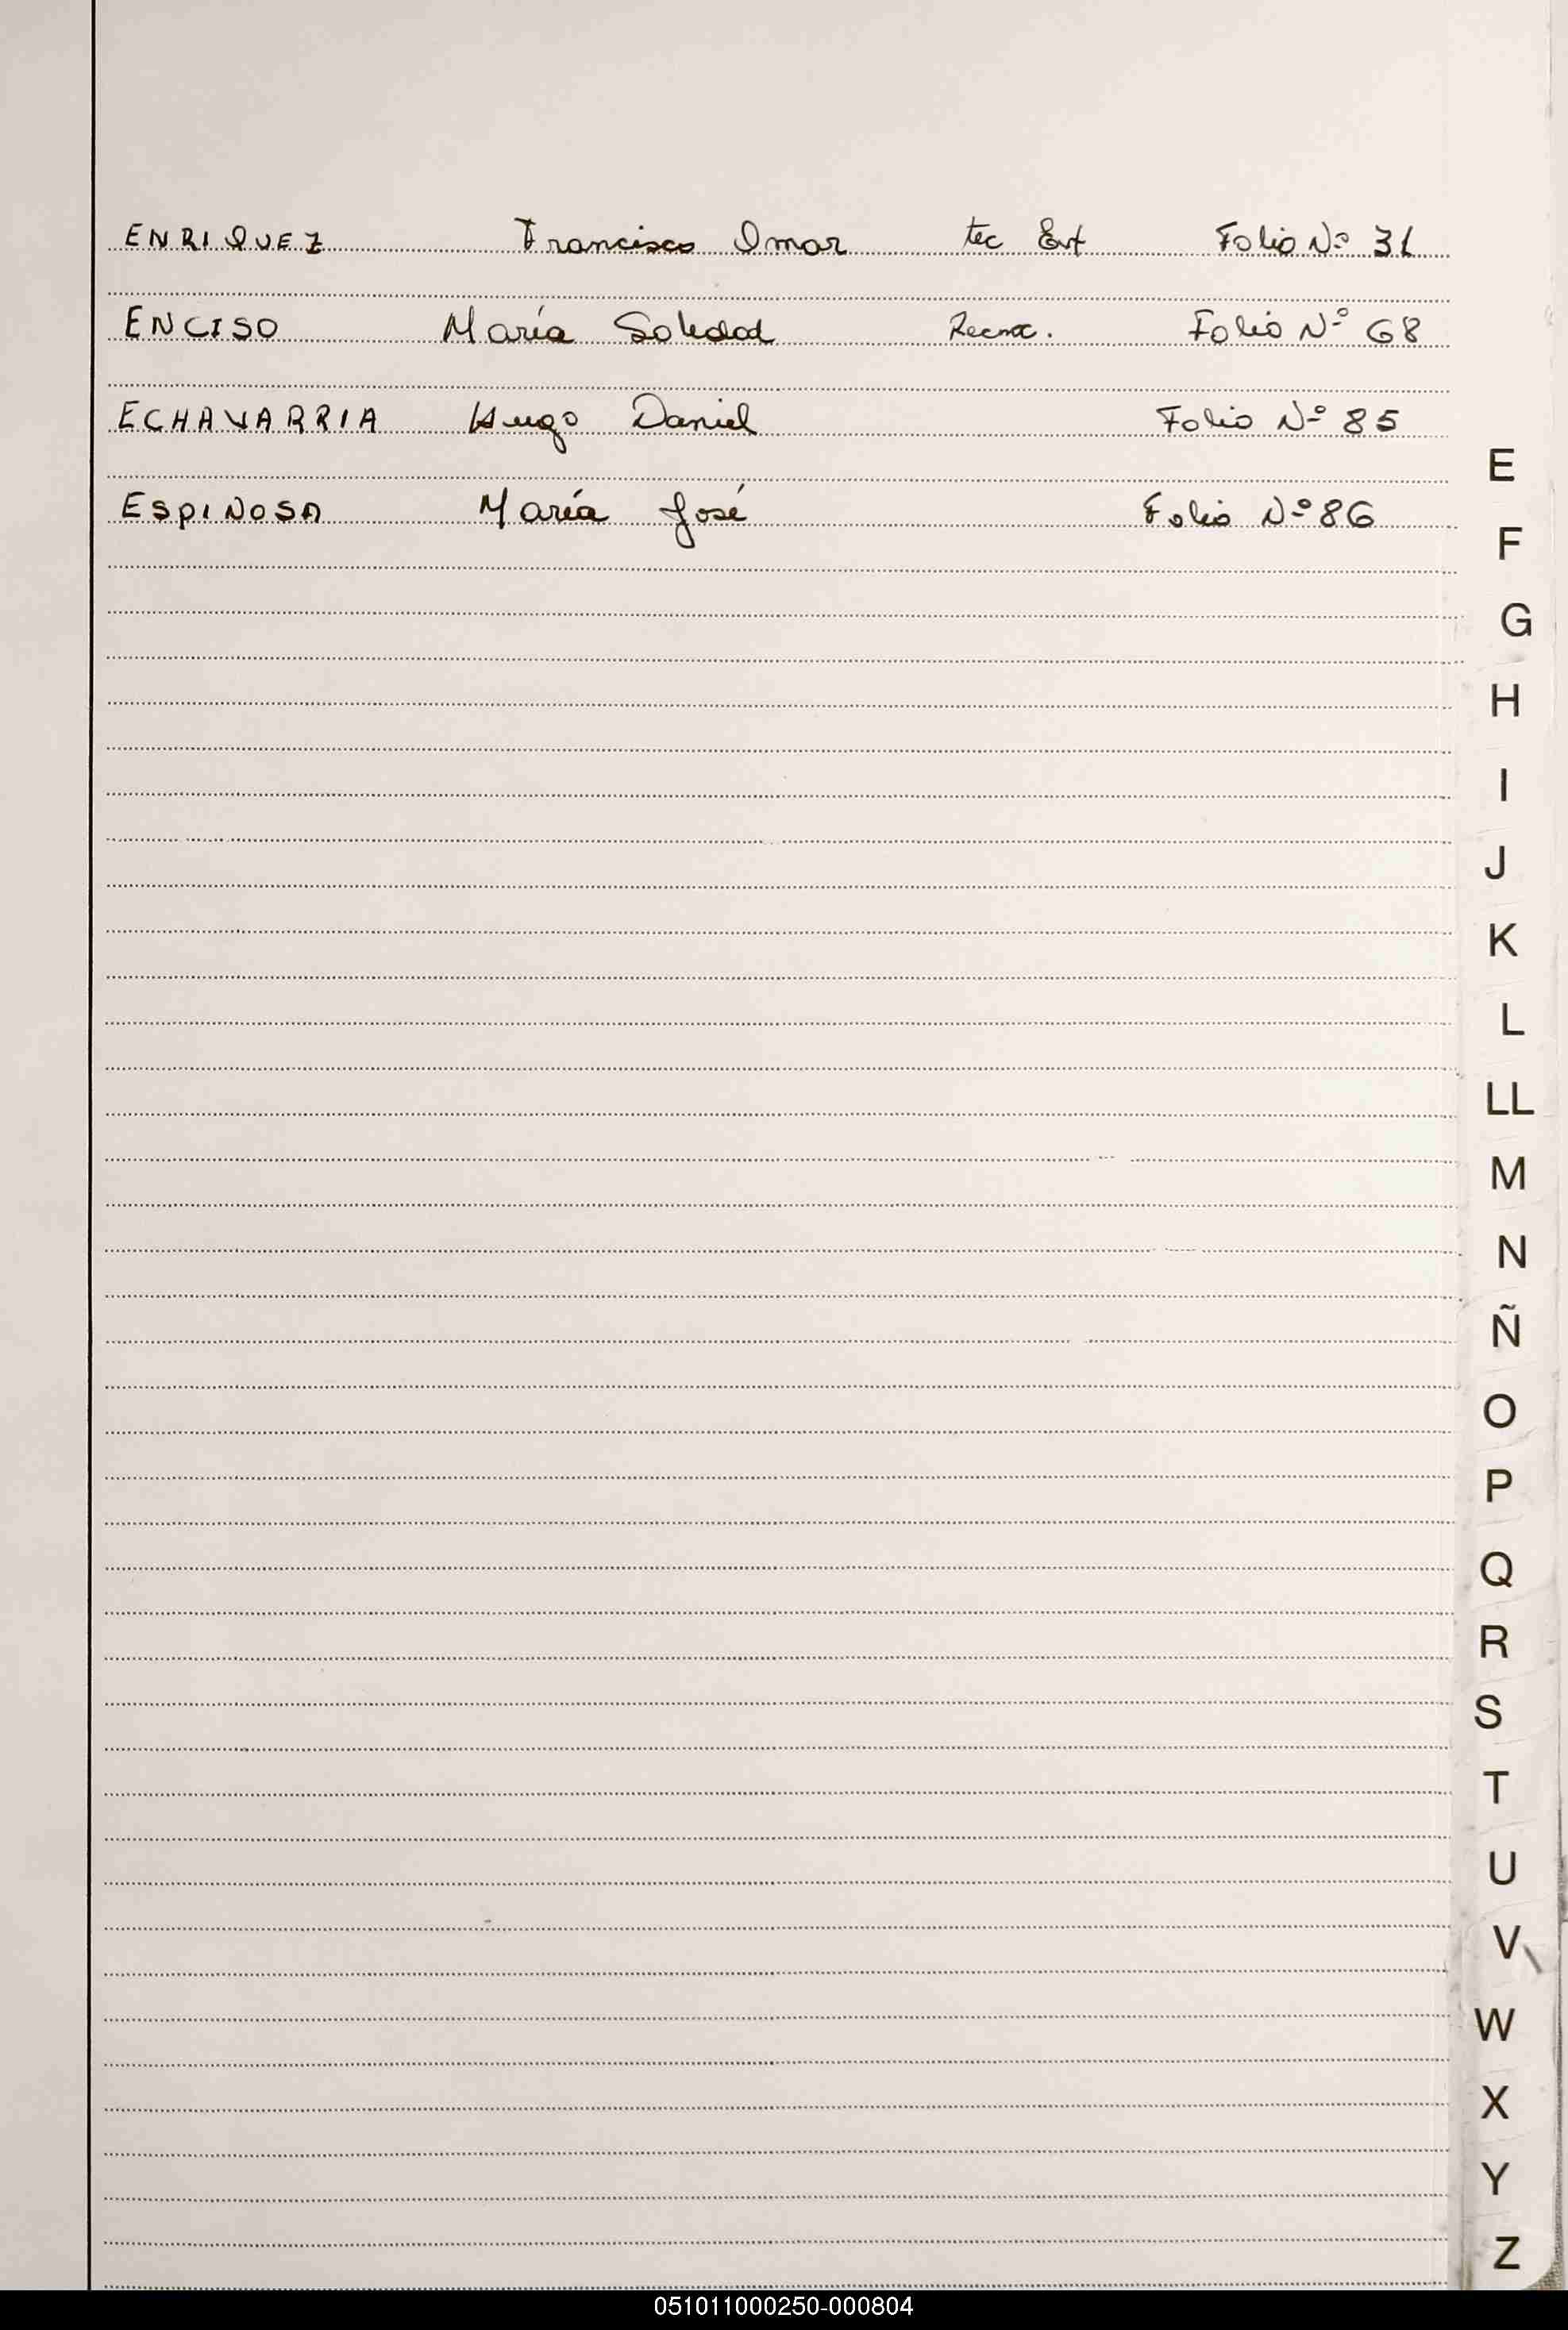 ENRIQUEZ Francisco Omar tec Ext Folio Nº 31
ENCISO María Soledad Recnoc. Folio Nº 68
ECHAVARRIA Hugo Daniel Folio Nº 85
ESPINOSA María José Folio Nº 86
E
F
G
H
I
J
K
L
LL
M
N
Ñ
O
P
Q
R
S
T
U
V
W
X
Y
Z
051011000250-000804